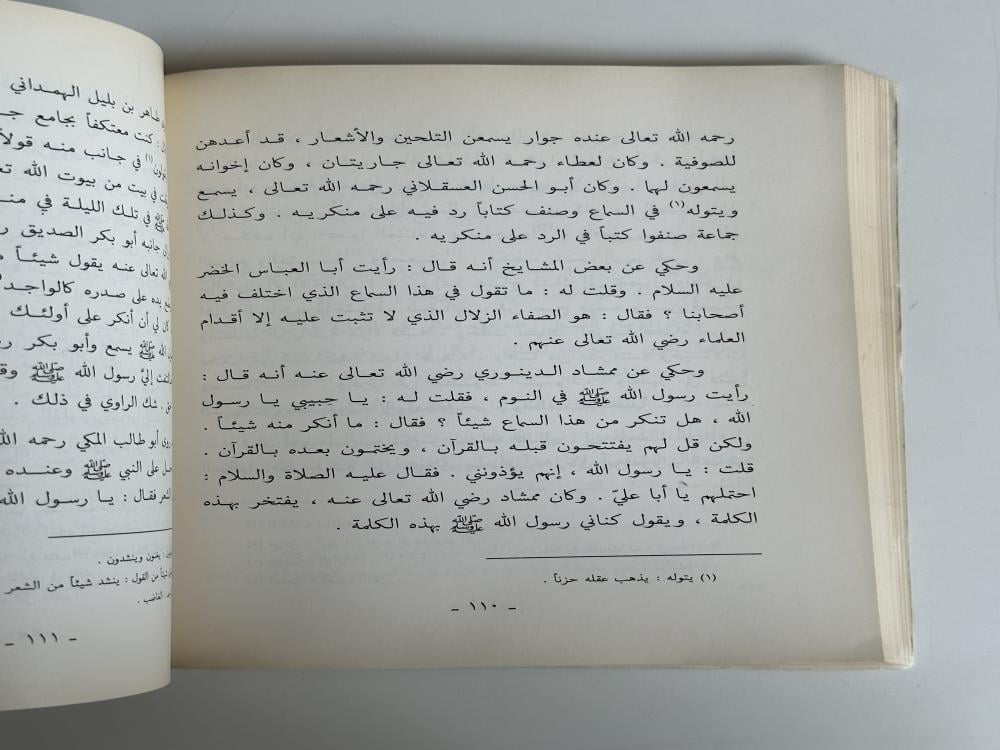 رحمه الله تعالى عنده جوار يسمعن التلحين والأشعار ، قد أعدهن
للصوفية . وكان لعطاء رحمه الله تعالى جاريتان ، وكان إخوانه
يسمعون لهما . وكان أبو الحسن العسقلاني رحمه الله تعالى ، يسمع
ويتوله(١) في السماع وصنف كتاباً رد فيه على منكريه . وكذلك
جماعة صنفوا كتباً في الرد على منكريه .
وحكي عن بعض المشايخ أنه قال : رأيت أبا العباس الخضر
عليه السلام . وقلت له : ما تقول في هذا السماع الذي اختلف فيه
أصحابنا ؟ فقال : هو الصفاء الزلال الذي لا تثبت عليه إلا أقدام
العلماء رضي الله تعالى عنهم .
وحكي عن ممشاد الدينوري رضي الله تعالى عنه أنه قال :
رأيت رسول الله ﷺ في النوم ، فقلت له : يا حبيبي يا رسول
الله ، هل تنكر من هذا السماع شيئاً ؟ فقال : ما أنكر منه شيئاً .
ولكن قل لهم يفتتحون قبله بالقرآن ، ويختمون بعده بالقرآن .
قلت : يا رسول الله ، إنهم يؤذونني . فقال عليه الصلاة والسلام :
احتملهم يا أبا عليّ . وكان ممشاد رضي الله تعالى عنه ، يفتخر بهذه
الكلمة ، ويقول كناني رسول الله ﷺ بهذه الكلمة .
(١) يتوله : يذهب عقله حزناً .
- ١١٠ -
طاهر بن بليل الهمداني
كنت معتكفاً بجامع
(١) في جانب منه قولاً
في بيت من بيوت الله
ﷺ في تلك الليلة في
جانبه أبو بكر الصديق
الله تعالى عنه يقول شيئاً
يده على صدره كالواجد
لي أن أنكر على أولئك
الله ﷺ يسمع وأبو بكر
إليَّ رسول الله ﷺ
. شك الراوي في ذلك .
أبو طالب المكي رحمه
على النبي ﷺ وعنده
فقال : يا رسول الله
: يغنون وينشدون .
من القول : ينشد شيئاً من الشعر
: الغاضب .
- ١١١ -